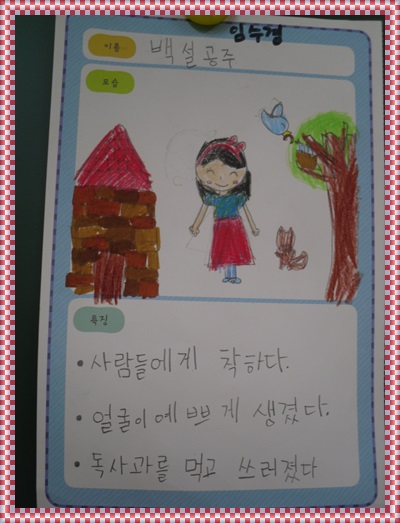 임수경
이름 백설공주
모습
특징
• 사람들에게 착하다.
• 얼굴이 예쁘게 생겼다.
• 독사과를 먹고 쓰러졌다